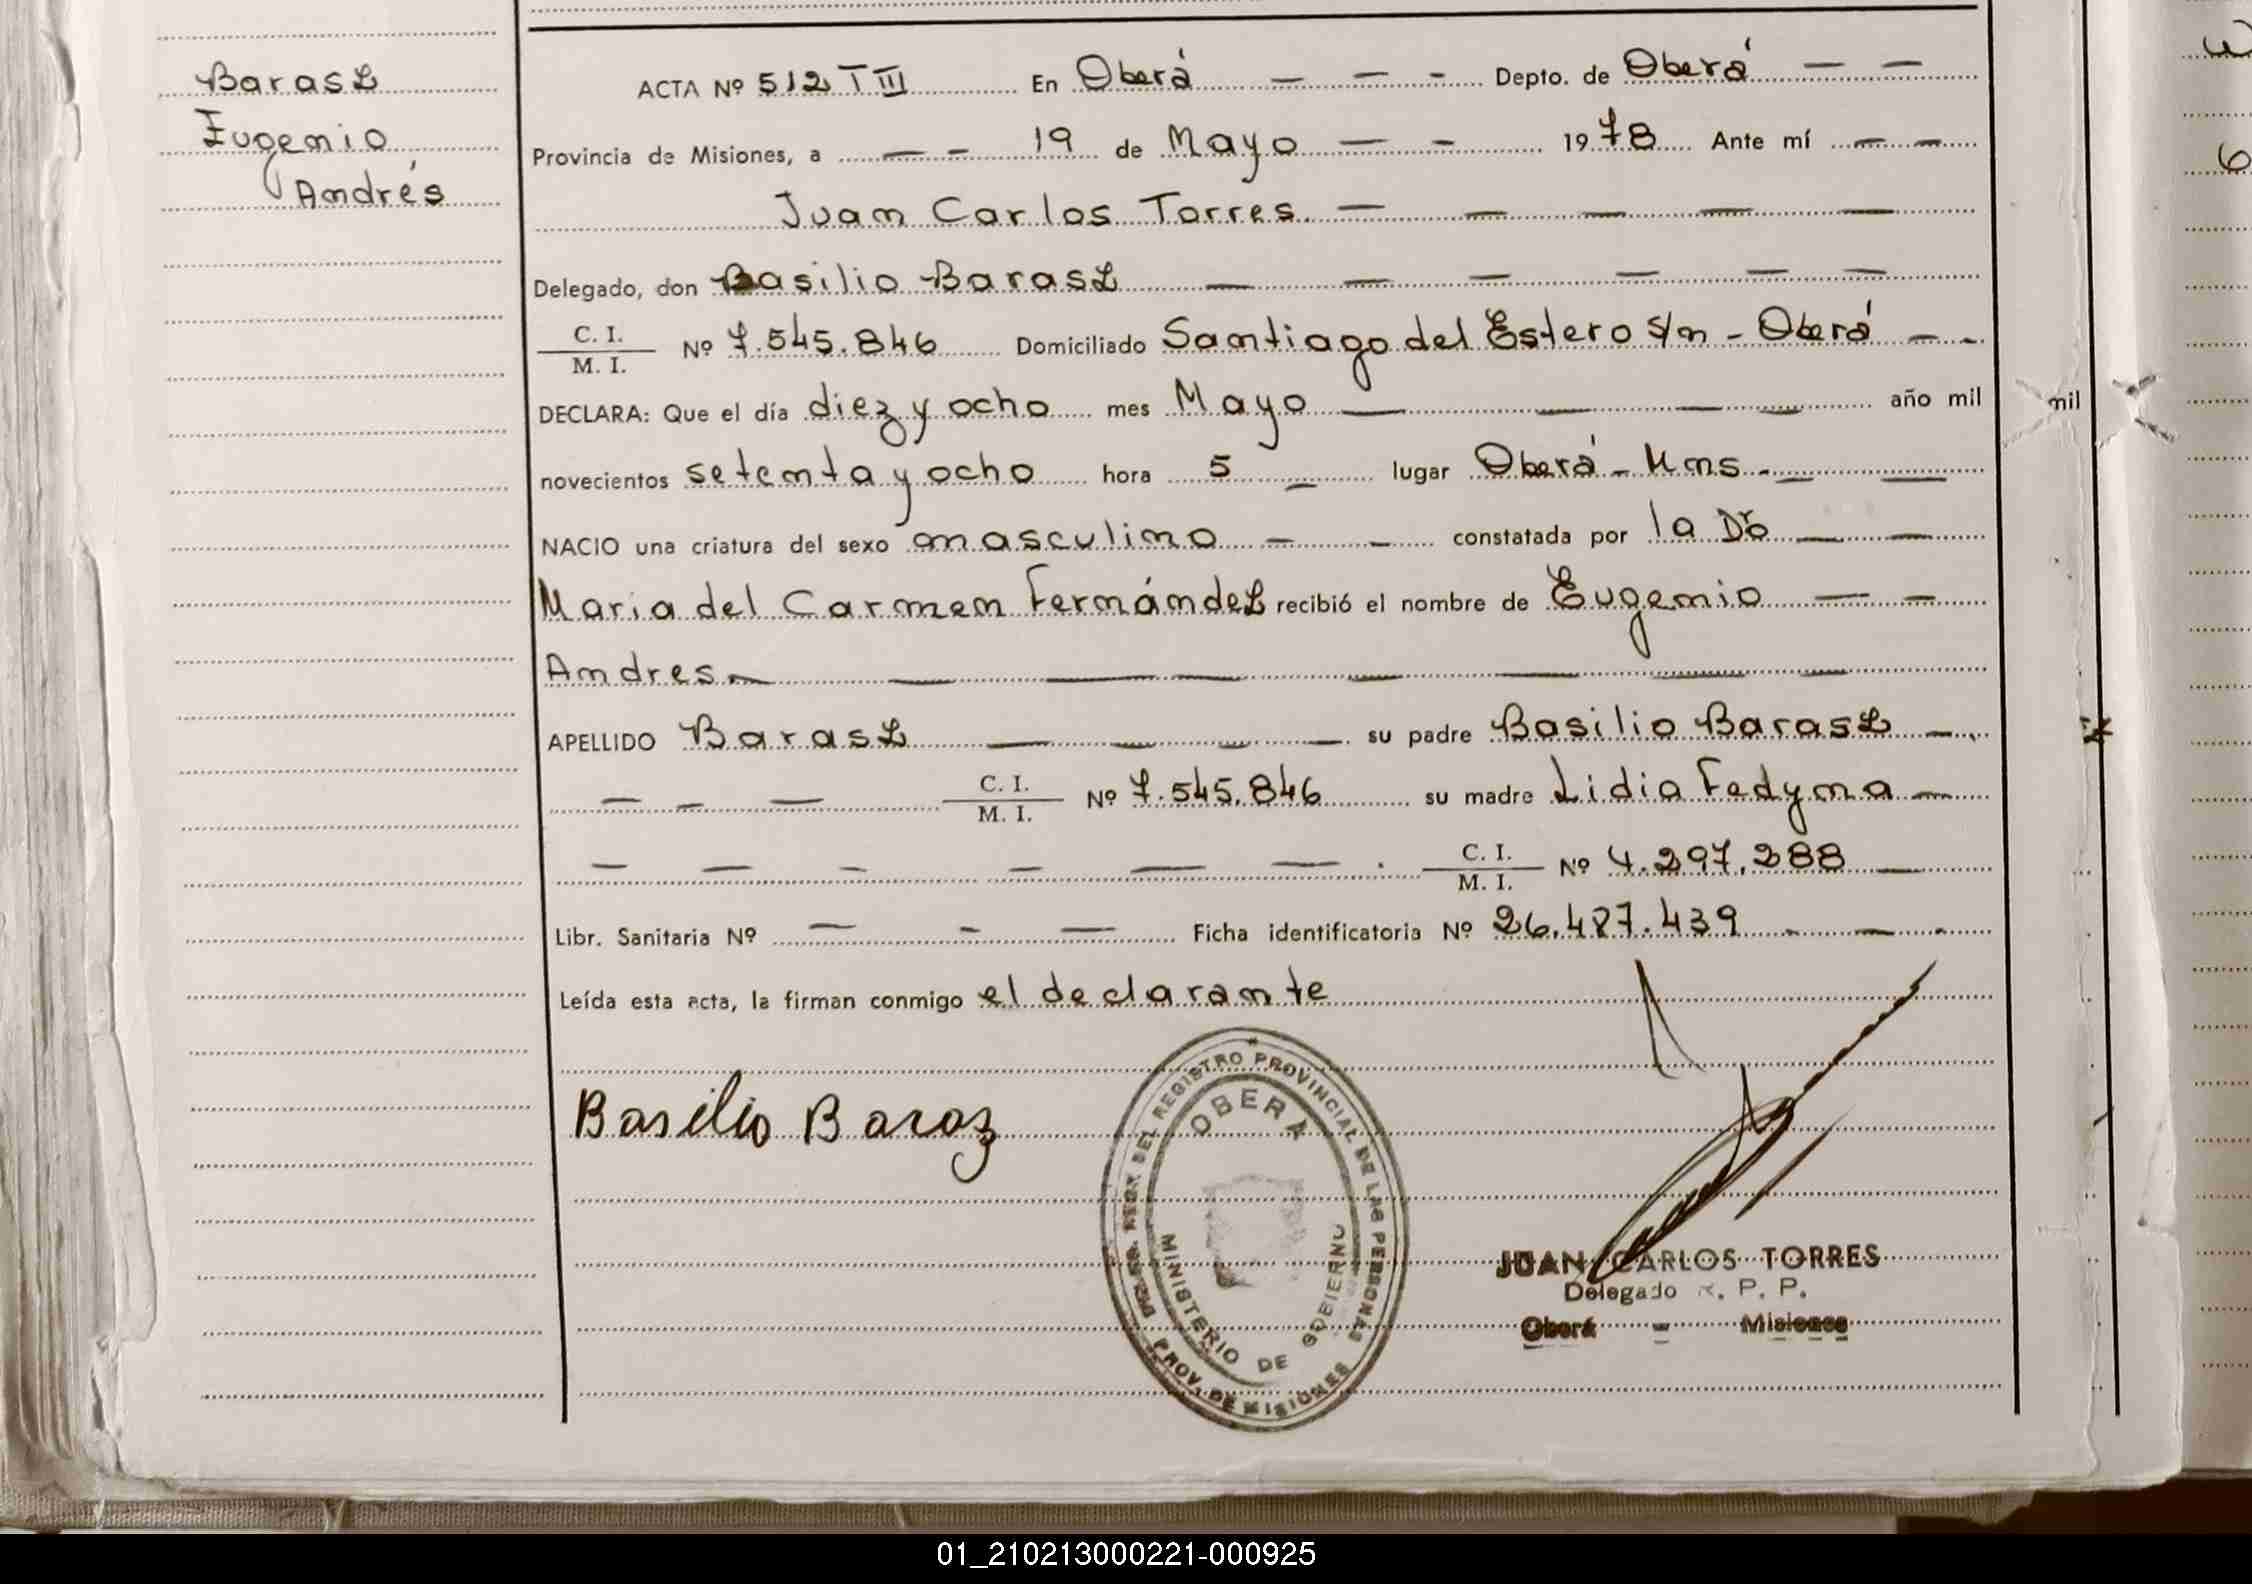 Barasz
Eugenio
Andrés
ACTA Nº 512 T III En Oberá Depto. de Oberá
Provincia de Misiones, a 19 de Mayo 1978 Ante mí
Juan Carlos Torres.
Delegado, don Basilio Barasz
C. I.
M. I.
Nº 7.545.846 Domiciliado Santiago del Estero s/n - Oberá
DECLARA: Que el día diez y ocho mes Mayo año mil
novecientos setenta y ocho hora 5 lugar Oberá - Mns
NACIO una criatura del sexo masculino constatada por la Dra
Maria del Carmen Fernández recibió el nombre de Eugenio
Andres
APELLIDO Barasz su padre Basilio Barasz
C. I.
M. I.
Nº 7.545.846 su madre Lidia Fedyna
C. I.
M. I.
Nº 4.297.288
Libr. Sanitaria Nº Ficha identificatoria Nº 26.487.439
Leída esta acta, la firman conmigo el declarante
Basilio Baraz
DEL REGISTRO PROVINCIAL DE LAS PERSONAS
PROV. DE MISIONES
OBERA
MINISTERIO DE GOBIERNO
JUAN CARLOS TORRES
Delegado R. P. P.
Oberá - Misiones
mil
01_210213000221-000925